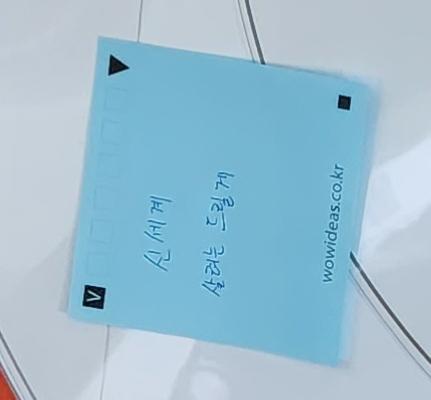 신세계
살려는 드릴게
wowideas.co.kr